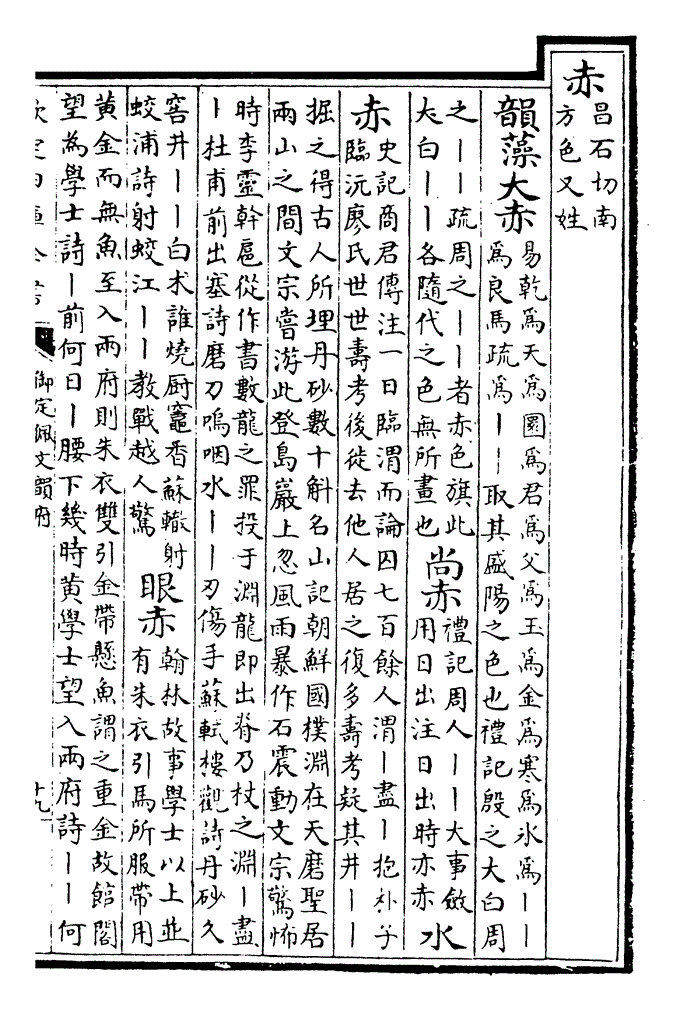 赤
昌石切南
方色又姓
韻藻大赤
易乾為天為圜為君為父為玉為金為寒為氷為丨丨
為良馬疏為丨丨取其盛陽之色也禮記殷之大白周
之丨丨疏周之丨丨者赤色旗此
大白丨丨各隨代之色無所畫也
尚赤
禮記周人丨丨大事斂
用日出注日出時亦赤
水
赤
史記商君傳注一日臨渭而論囚七百餘人渭丨盡丨抱朴子
臨沅廖氏世世壽考後徙去他人居之復多壽考疑其井丨丨
掘之得古人所埋丹砂數十斛名山記朝鮮國樸淵在天磨聖居
兩山之間文宗嘗游此登島巖上忽風雨暴作石震動文宗驚怖
時李靈幹扈從作書數龍之罪投于淵龍即出脊乃杖之淵丨盡
丨杜甫前出塞詩磨刀嗚咽水丨丨刃傷手蘇軾樓觀詩丹砂久
窖井丨丨白术誰燒厨竈香蘇轍射
蛟浦詩射蛟江丨丨教戰越人驚
眼赤
翰林故事學士以上並
有朱衣引馬所服帶用
黄金而無魚至入兩府則朱衣雙引金帶懸魚謂之重金故館閣
望為學士詩丨前何日丨腰下幾時黄學士望入兩府詩丨丨何
欽定四庫全書
御定佩文韻府